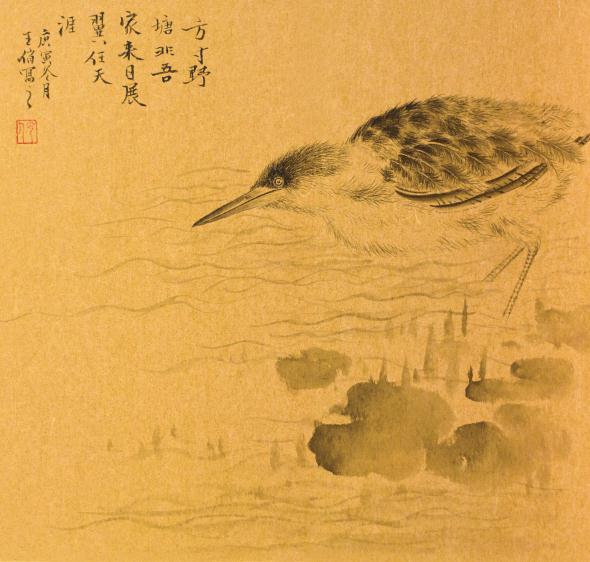 方寸野
塘非吾
家来日展
翼任天
涯
庚寅冬月
王俏写之